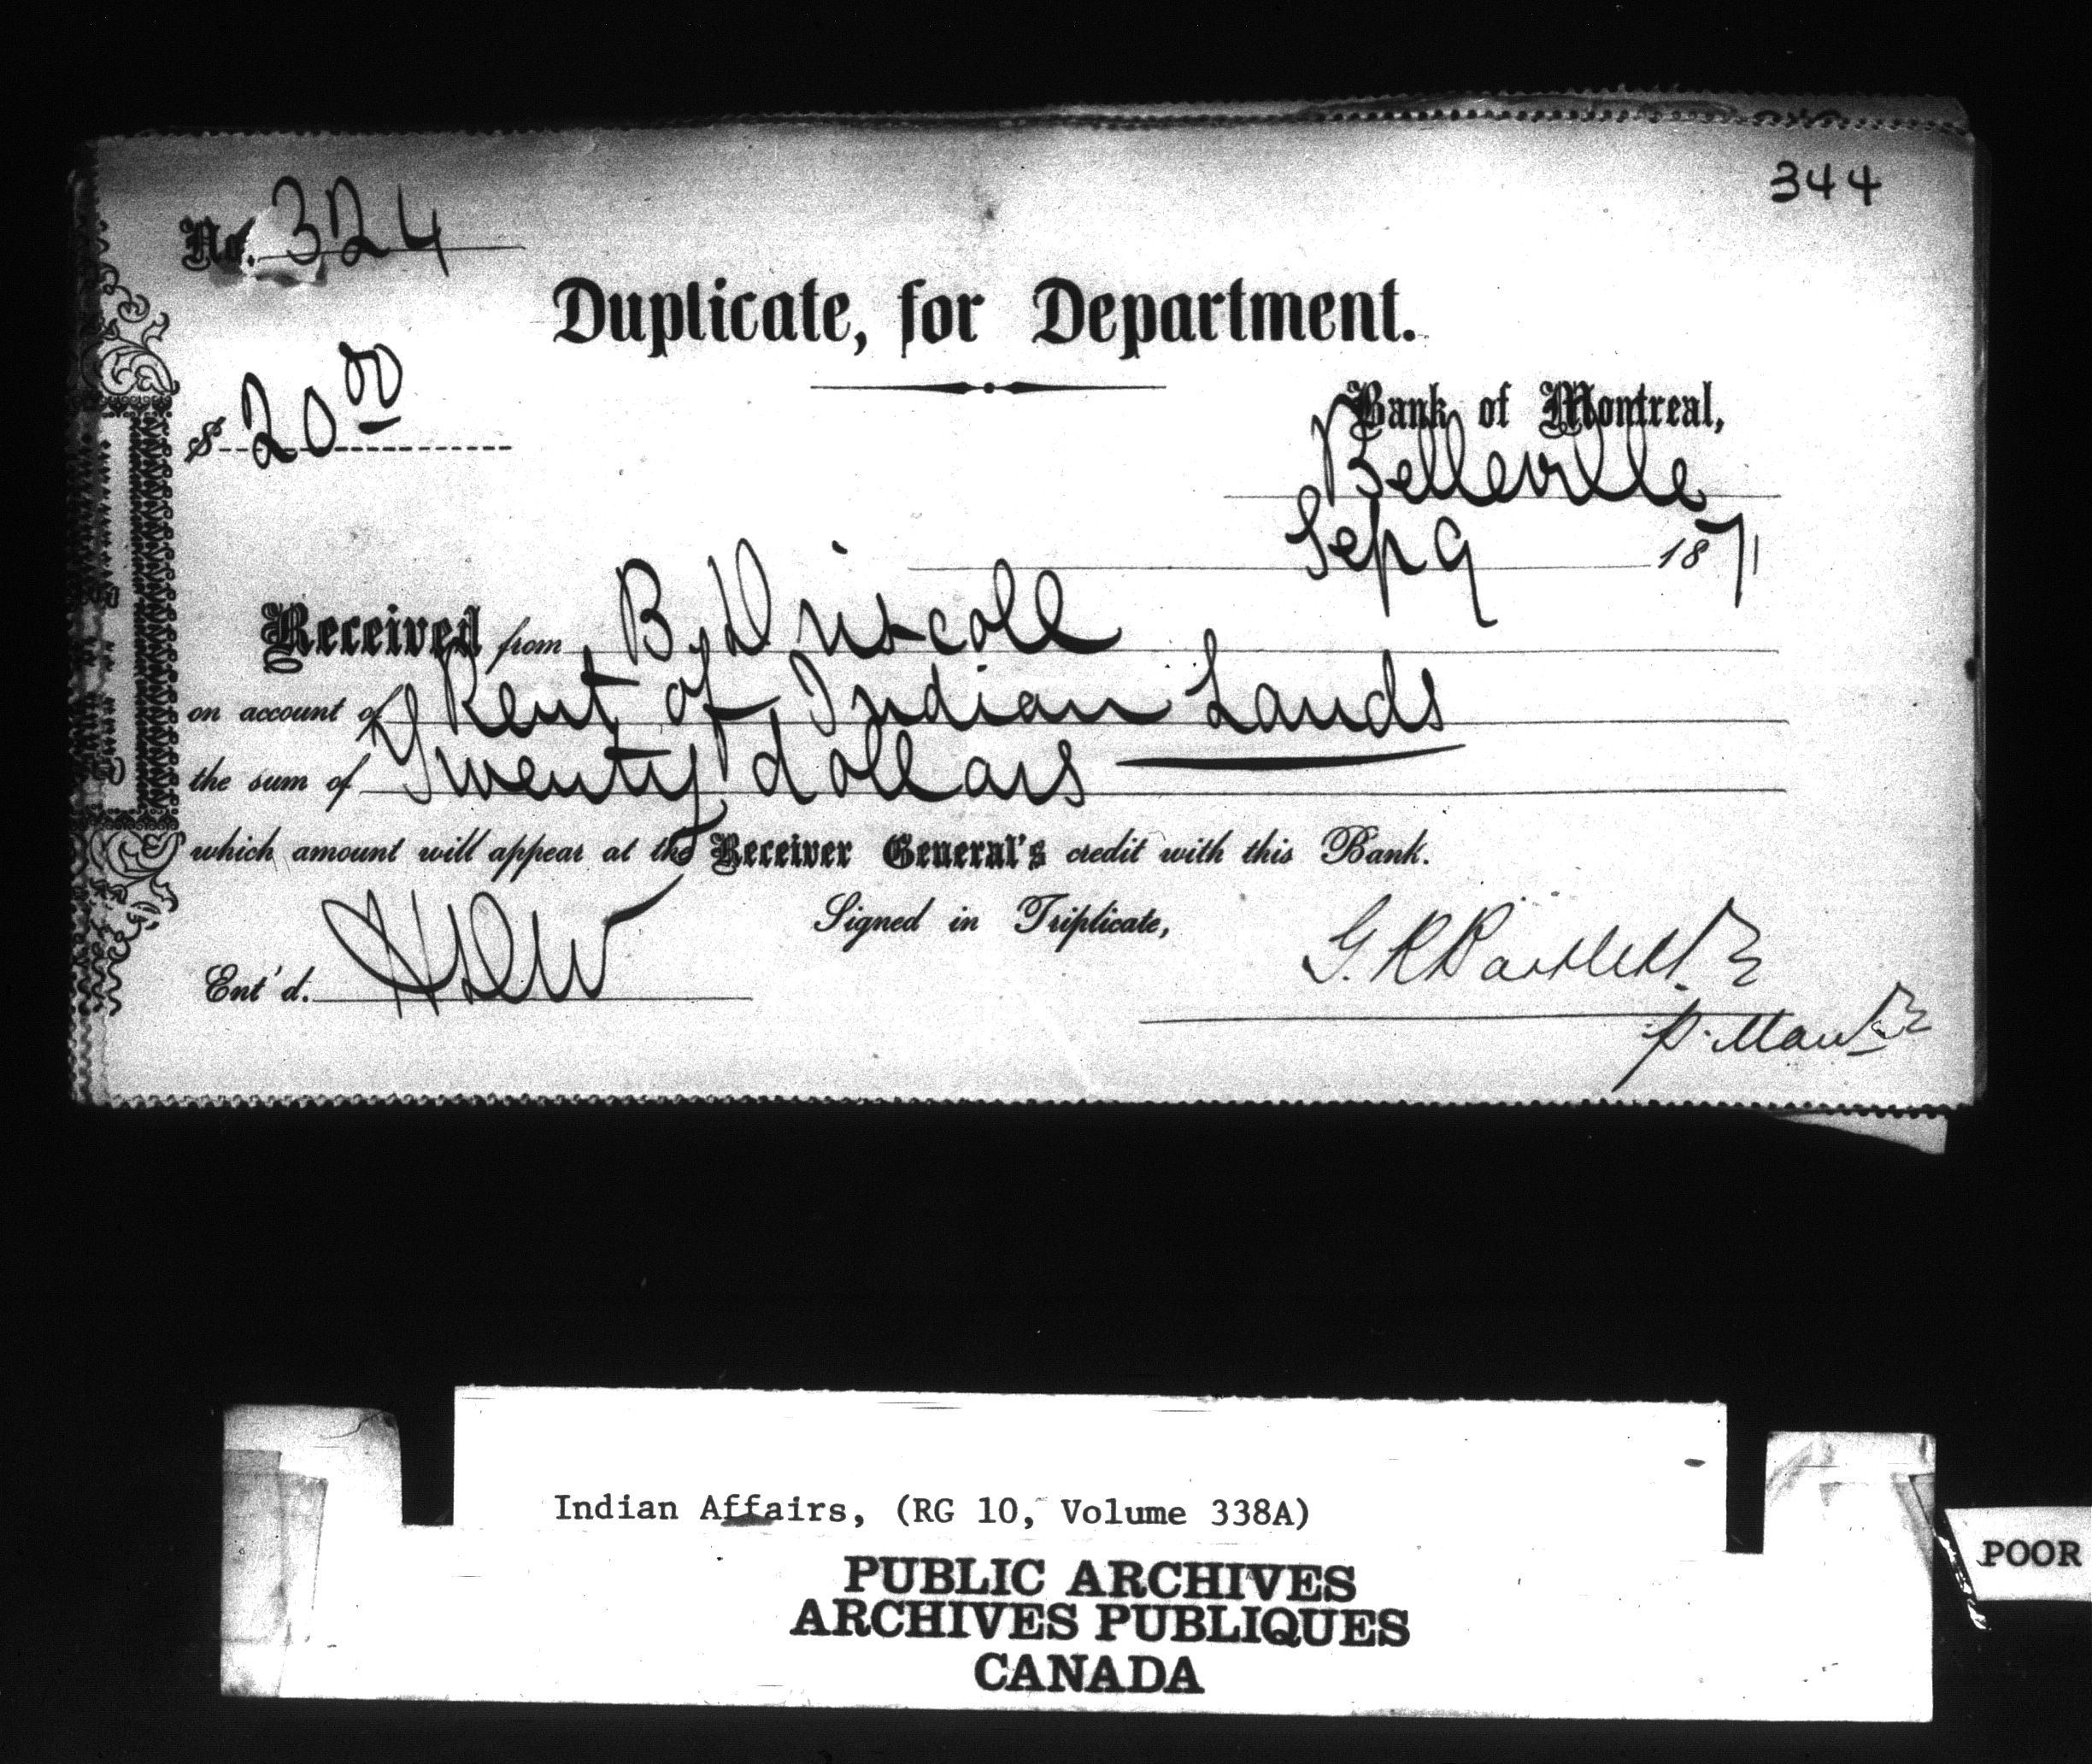 344
No. 324
Duplicate, for Department.
$ 20 00
Bank of Montreal,
Belleville
Sep 9 1871
Received from B. Driscoll
on account of Rent of Indian Lands
the sum of Twenty dollars
which amount will appear at the Receiver General's credit with this Bank.
Signed in Triplicate,
Ent'd.
p. Man
Indian Affairs, (RG 10, Volume 338A)
PUBLIC ARCHIVES
ARCHIVES PUBLIQUES
CANADA
POOR